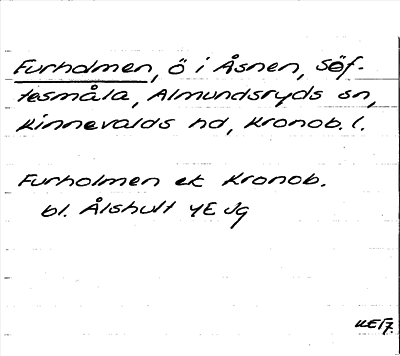 Furholmen, ö i Åsnen, Söf-
tesmåla, Almundsryds sn,
Kinnevalds hd, Kronob. l.
Furholmen ek Kronob.
bl. Ålshult 4E Jg